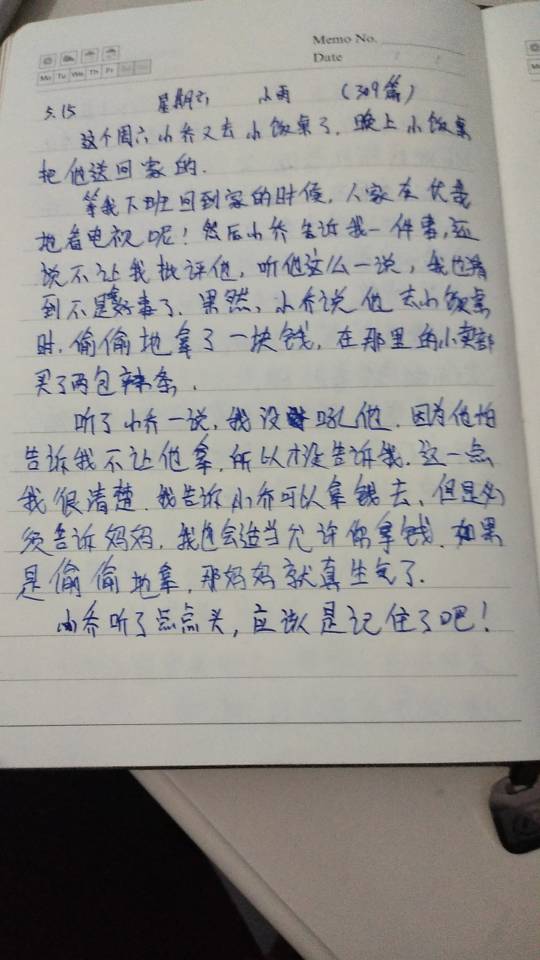 Memo No.
Date
Mo Tu We Th Fr
5.15 星期六 小雨 (309篇)
这个周六小乔又去小饭桌了，晚上小饭桌
把他送回家的.
等我下班回到家的时候，人家在优哉
地看电视呢！然后小乔告诉我一件事，还
说不让我批评他，听他这么一说，我也猜
到不是好事了．果然，小乔说他去小饭桌
时，偷偷地拿了一块钱，在那里的小卖部
买了两包辣条．
听了小乔一说，我没吼他．因为他怕
告诉我不让他拿，所以才没告诉我．这一点
我很清楚．我告诉小乔可以拿钱去，但是必
须告诉妈妈，我也会适当允许你拿钱．如果
是偷偷地拿，那妈妈就真生气了．
小乔听了点点头，应该是记住了吧！